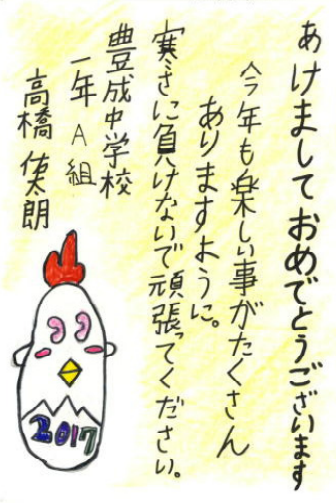 あけましておめでとうございます
今年も楽しい事がたくさん
ありますように。
寒さに負けないで頑張ってください。
豊成中学校
一年A組
高橋侑太朗
2017